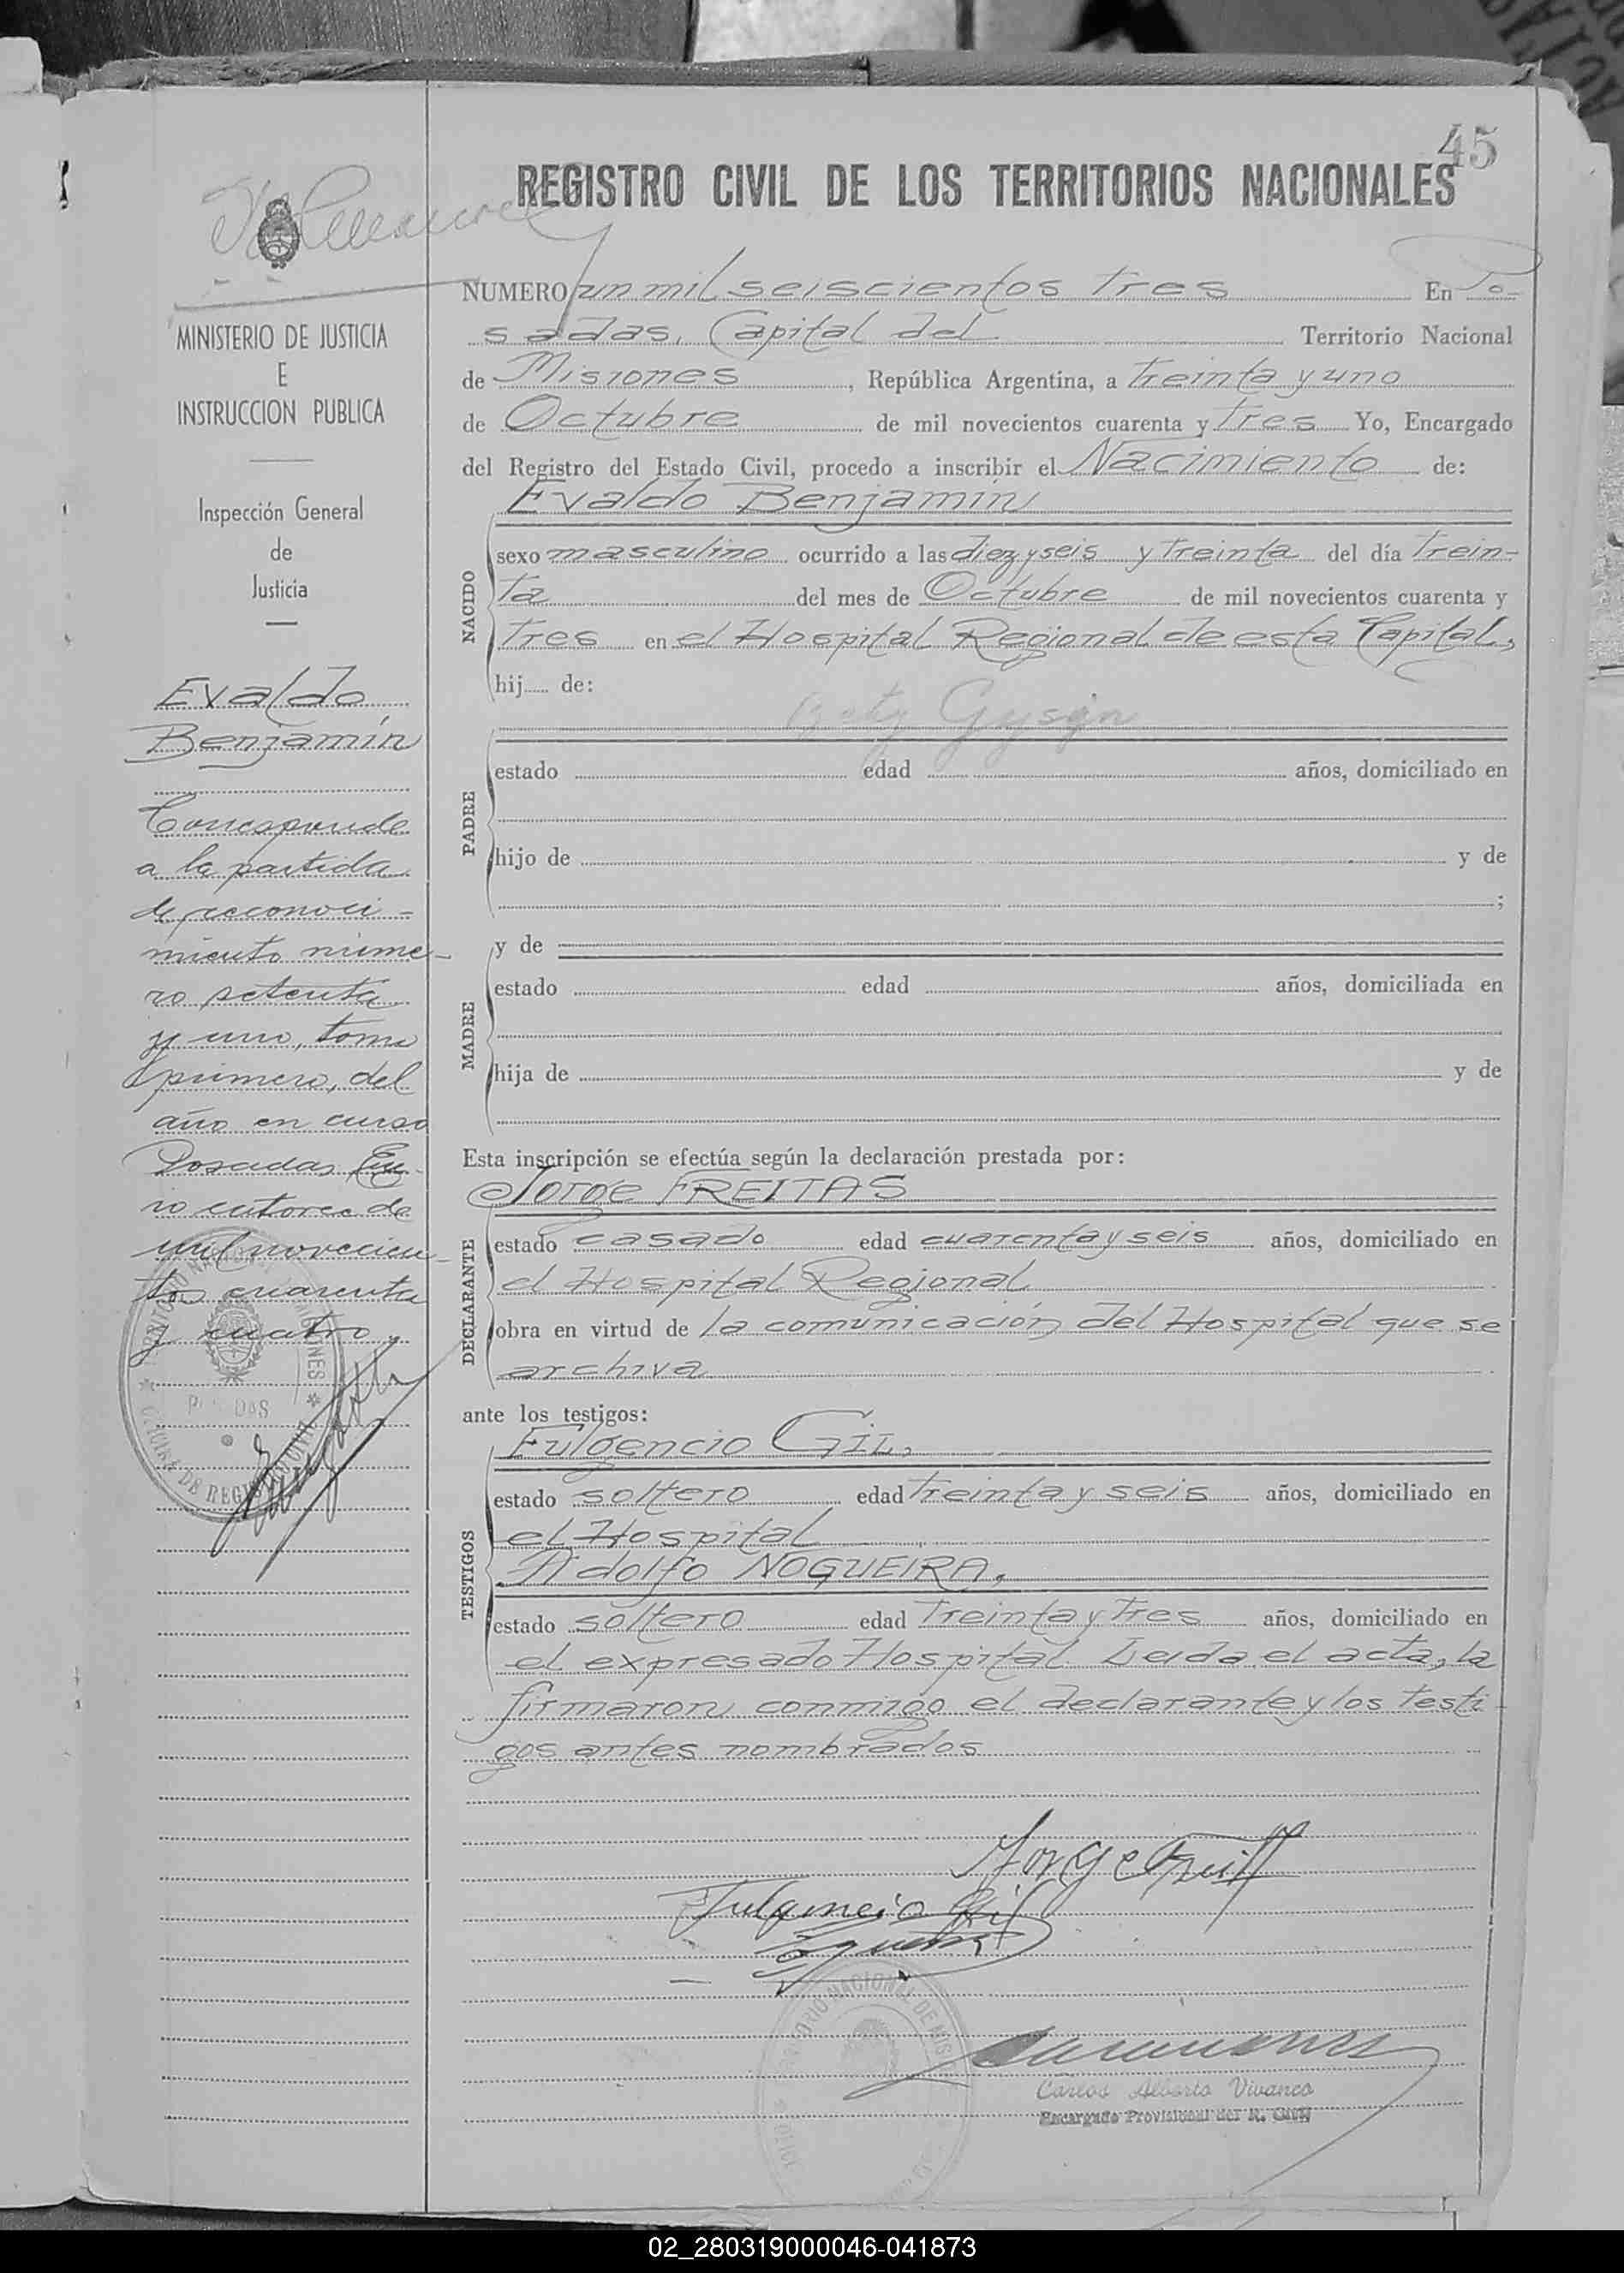 45
REGISTRO CIVIL DE LOS TERRITORIOS NACIONALES
MINISTERIO DE JUSTICIA
E
INSTRUCCION PUBLICA
Inspección General
de
Justicia
Evaldo
Benjamín
Corresponde
a la partida
de reconoci-
miento núme-
ro setenta
y uno, tomo
primero, del
año en curso
Posadas, Ene-
ro catorce de
mil novecien-
tos cuarenta
y cuatro
NUMERO un mil seiscientos tres En Po-
sadas, Capital del Territorio Nacional
de Misiones, República Argentina, a treinta y uno
de Octubre de mil novecientos cuarenta y tres Yo, Encargado
del Registro del Estado Civil, procedo a inscribir el Nacimiento de:
Evaldo Benjamín
NACIDO
sexo masculino ocurrido a las diez y seis y treinta del día trein-
ta del mes de Octubre de mil novecientos cuarenta y
tres en el Hospital Regional de esta Capital,
hij de:
PADRE
estado edad años, domiciliado en
hijo de y de
;
MADRE
y de
estado edad años, domiciliada en
hija de y de
Esta inscripción se efectúa según la declaración prestada por:
Jorge FREITAS
DECLARANTE
estado casado edad cuarenta y seis años, domiciliado en
el Hospital Regional
obra en virtud de la comunicación del Hospital que se
archiva
ante los testigos:
TESTIGOS
Fulgencio GIL,
estado soltero edad treinta y seis años, domiciliado en
el Hospital
Adolfo NOGUEIRA,
estado soltero edad treinta y tres años, domiciliado en
el expresado Hospital. Leida el acta, la
firmaron conmigo el declarante y los testi-
gos antes nombrados
Fulgencio Gil
Carlos Alberto Vivanco
Encargado Provisional del R. Civil
02_280319000046-041873